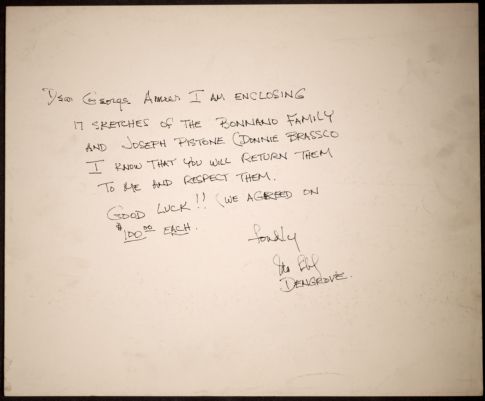 Dear George Anner I AM ENCLOSING
17 SKETCHES OF THE BONNANO FAMILY
AND JOSEPH PISTONE (DONNIE BRASSCO
I KNOW THAT YOU WILL RETURN THEM
TO ME AND RESPECT THEM.
GOOD LUCK!! (WE AGREED ON
$100.00 EACH.
fondly
DENGROVE.